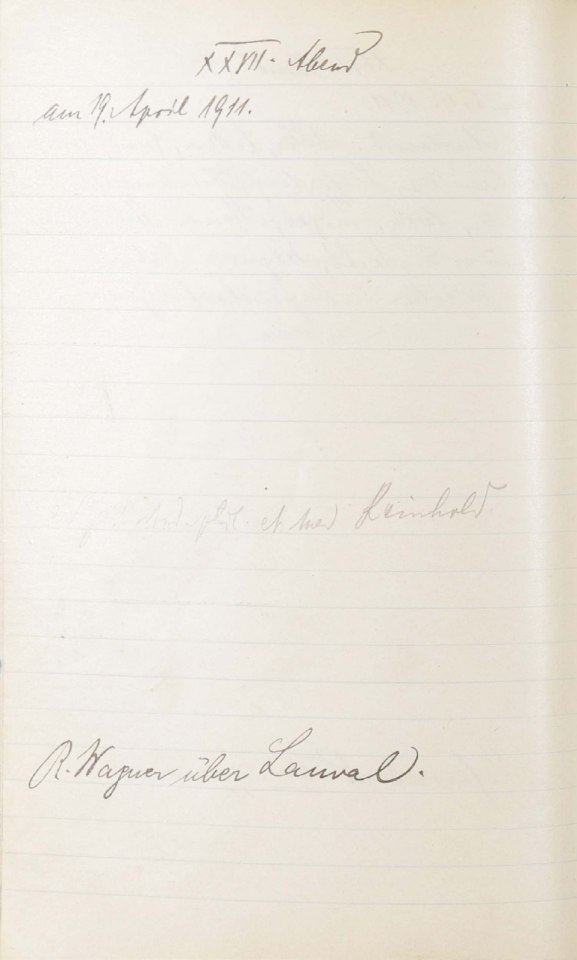 XXVII. Abend
am 19. April 1911.
phil. et med Reinhold.
R. Wagner über Lanval.